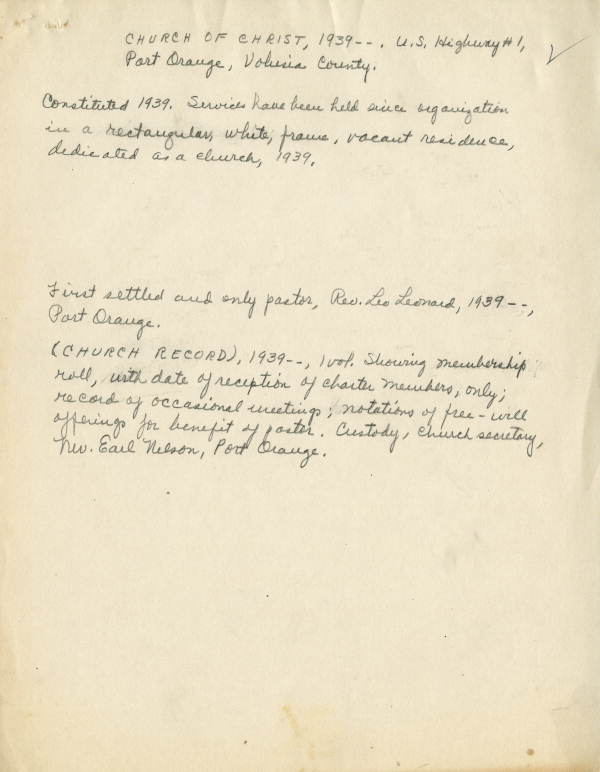 CHURCH OF CHRIST, 1939--. U.S. Highway #1,
Port Orange, Volusia County.
Constituted 1939. Services have been held since organization
in a rectangular, white, frame, vacant residence,
dedicated as a church, 1939.
First settled and only pastor, Rev. Leo Leonard, 1939--,
Port Orange.
(CHURCH RECORD), 1939--, 1 vol. Showing membership
roll, with date of reception of charter members, only;
record of occasional meetings; notations of free-will
offerings for benefit of pastor. Custody, church secretary,
Mr. Earl Nelson, Port Orange.